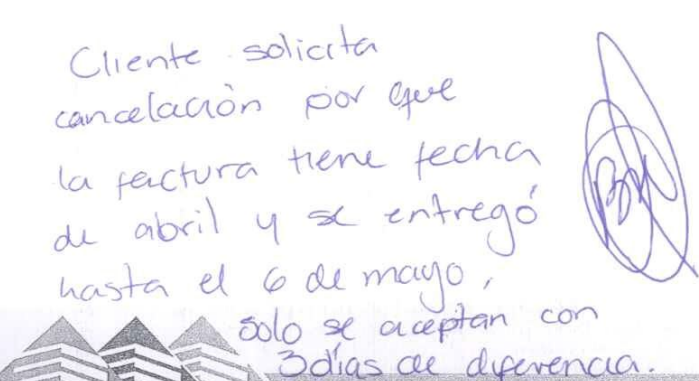 Cliente solicita
cancelación por que
la factura tiene fecha
de abril y se entregó
hasta el 6 de mayo,
solo se aceptan con
3 días de diferencia.